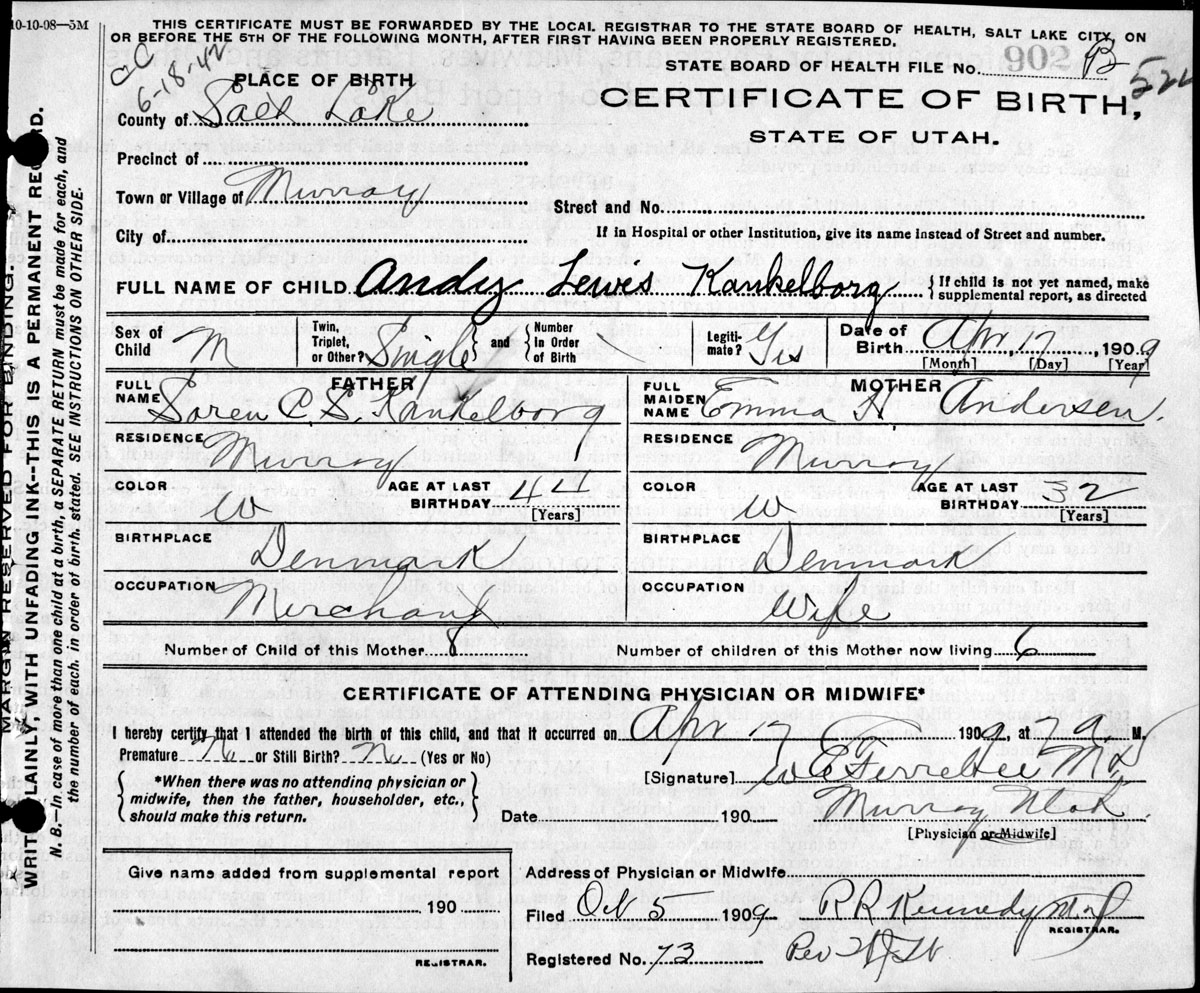 10-10-08—5M
THIS CERTIFICATE MUST BE FORWARDED BY THE LOCAL REGISTRAR TO THE STATE BOARD OF HEALTH, SALT LAKE CITY, ON
OR BEFORE THE 5TH OF THE FOLLOWING MONTH, AFTER FIRST HAVING BEEN PROPERLY REGISTERED.
CC
6-18-42
STATE BOARD OF HEALTH FILE No. 902 B
522
PLACE OF BIRTH
CERTIFICATE OF BIRTH,
STATE OF UTAH.
County of Salt Lake
Precinct of
Town or Village of Murray
Street and No.
City of
If in Hospital or other Institution, give its name instead of Street and number.
FULL NAME OF CHILD Andy Lewis Kankelborg {If child is not yet named, make supplemental report, as directed
Sex of Child M
Twin, Triplet, or Other? Single and {Number in Order of Birth
Legitimate? Yes
Date of Birth Apr, 17, 1909
[Month] [Day] [Year]
FATHER
FULL NAME Soren C. S. Kankelborg
RESIDENCE Murray
COLOR W
AGE AT LAST BIRTHDAY 44
[Years]
BIRTHPLACE Denmark
OCCUPATION Merchant
MOTHER
FULL MAIDEN NAME Emma H. Andersen.
RESIDENCE Murray
COLOR W
AGE AT LAST BIRTHDAY 32
[Years]
BIRTHPLACE Denmark
OCCUPATION Wife
Number of Child of this Mother 8
Number of children of this Mother now living 6
CERTIFICATE OF ATTENDING PHYSICIAN OR MIDWIFE*
I hereby certify that I attended the birth of this child, and that it occurred on Apr 17 1909, at 7 a. M.
Premature No or Still Birth? No (Yes or No)
{*When there was no attending physician or midwife, then the father, householder, etc., should make this return.}
[Signature] W E Ferrebee M.D.
Murray Utah
Date 190
[Physician or Midwife]
Give name added from supplemental report
190
REGISTRAR.
Address of Physician or Midwife
Filed Oct 5 1909 R R Kennedy M.D.
REGISTRAR.
Registered No. 73 Per
MARGIN RESERVED FOR BINDING.
WRITE PLAINLY, WITH UNFADING INK--THIS IS A PERMANENT RECORD.
N. B.—In case of more than one child at a birth, a SEPARATE RETURN must be made for each, and
the number of each, in order of birth, stated. SEE INSTRUCTIONS ON OTHER SIDE.